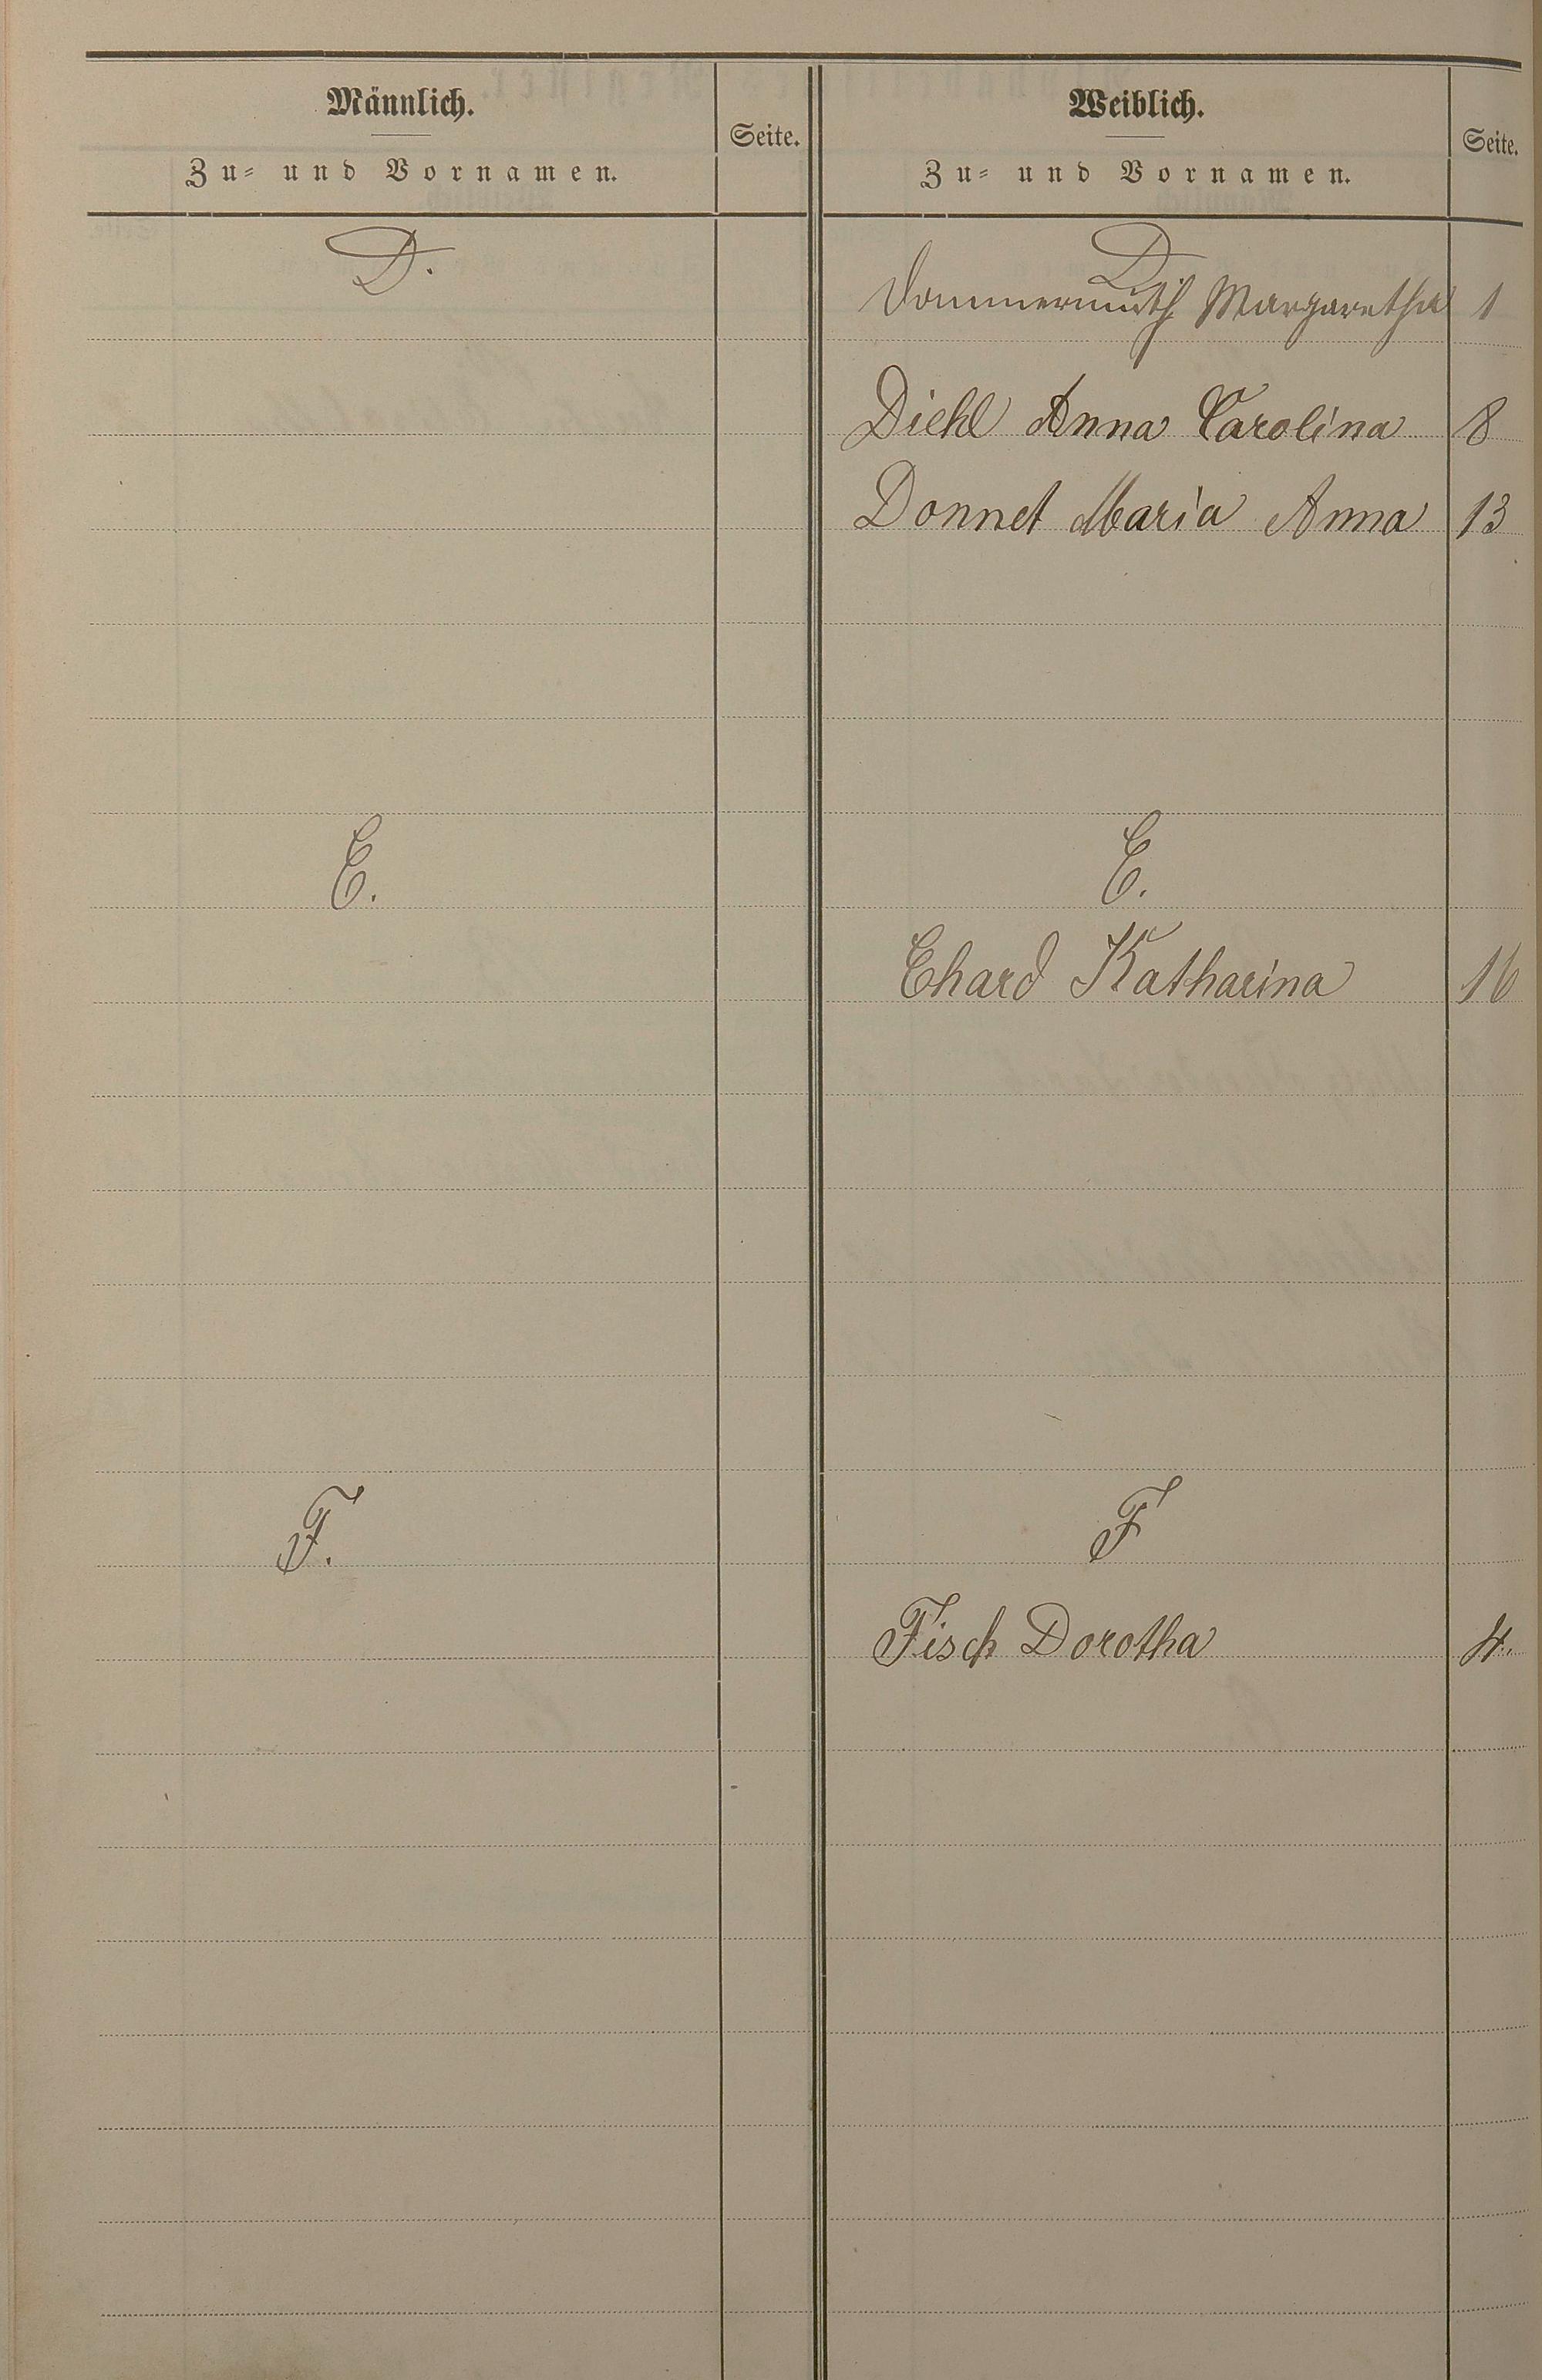 Männlich.
Zu- und Vornamen.
Seite.
Weiblich.
Zu- und Vornamen.
Seite.
D.
D
Dommermuth Margaretha 1
Diehl Anna Carolina 8
Donnet Maria Anna 13
E.
E.
Ehard Katharina 16
F.
F
Fisch Dorotha 4.